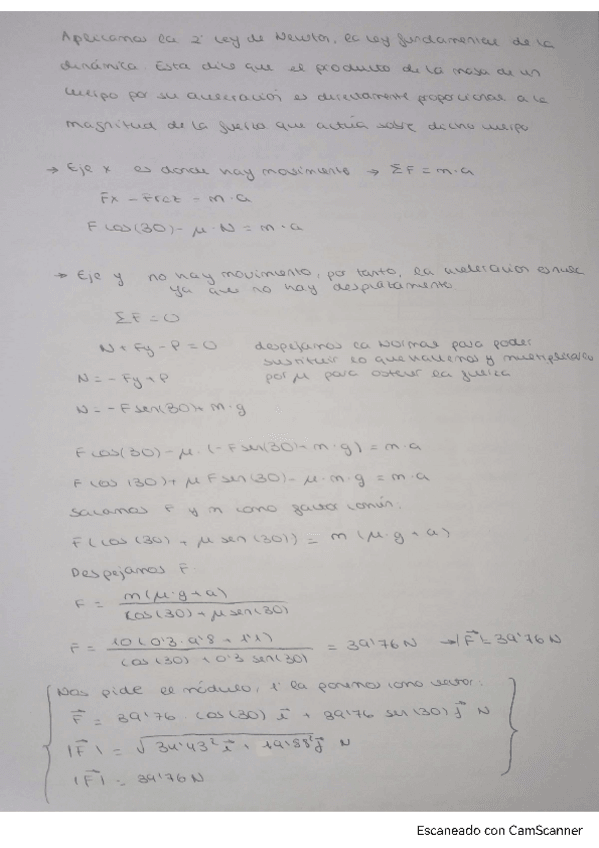 Aplicamos la 2ª Ley de Newton, la ley fundamental de la
dinámica. Esta dice que el producto de la masa de un
cuerpo por su aceleración es directamente proporcional a la
magnitud de la fuerza que actúa sobre dicho cuerpo
→ Eje x es donde hay movimiento → ΣF = m·a
Fx - Froz = m·a
F cos(30) - μ·N = m·a
→ Eje y no hay movimiento, por tanto, la aceleración es nula
ya que no hay desplazamiento
ΣF = 0
N + Fy - P = 0 despejamos la Normal para poder
sustituir lo que hallemos y multiplicarlo
N = - Fy + P por μ para obtener la fuerza
N = - F sen(30) + m·g
F cos(30) - μ·(-F sen(30) + m·g) = m·a
F cos(30) + μ F sen(30) - μ·m·g = m·a
Sacamos F y m como factor común.
F(cos(30) + μ sen(30)) = m(μ·g + a)
Despejamos F.
F = m(μ·g + a) / cos(30) + μ sen(30)
F = 10(0'3·9'8 + 1'1) / cos(30) + 0'3 sen(30) = 39'76 N → |F⃗| = 39'76 N
Nos pide el módulo, la ponemos como vector:
F⃗ = 39'76 · cos(30) i⃗ + 39'76 sen(30) j⃗ N
|F⃗| = √34'43² i⃗ + 19'88² j⃗ N
|F⃗| = 39'76 N
Escaneado con CamScanner